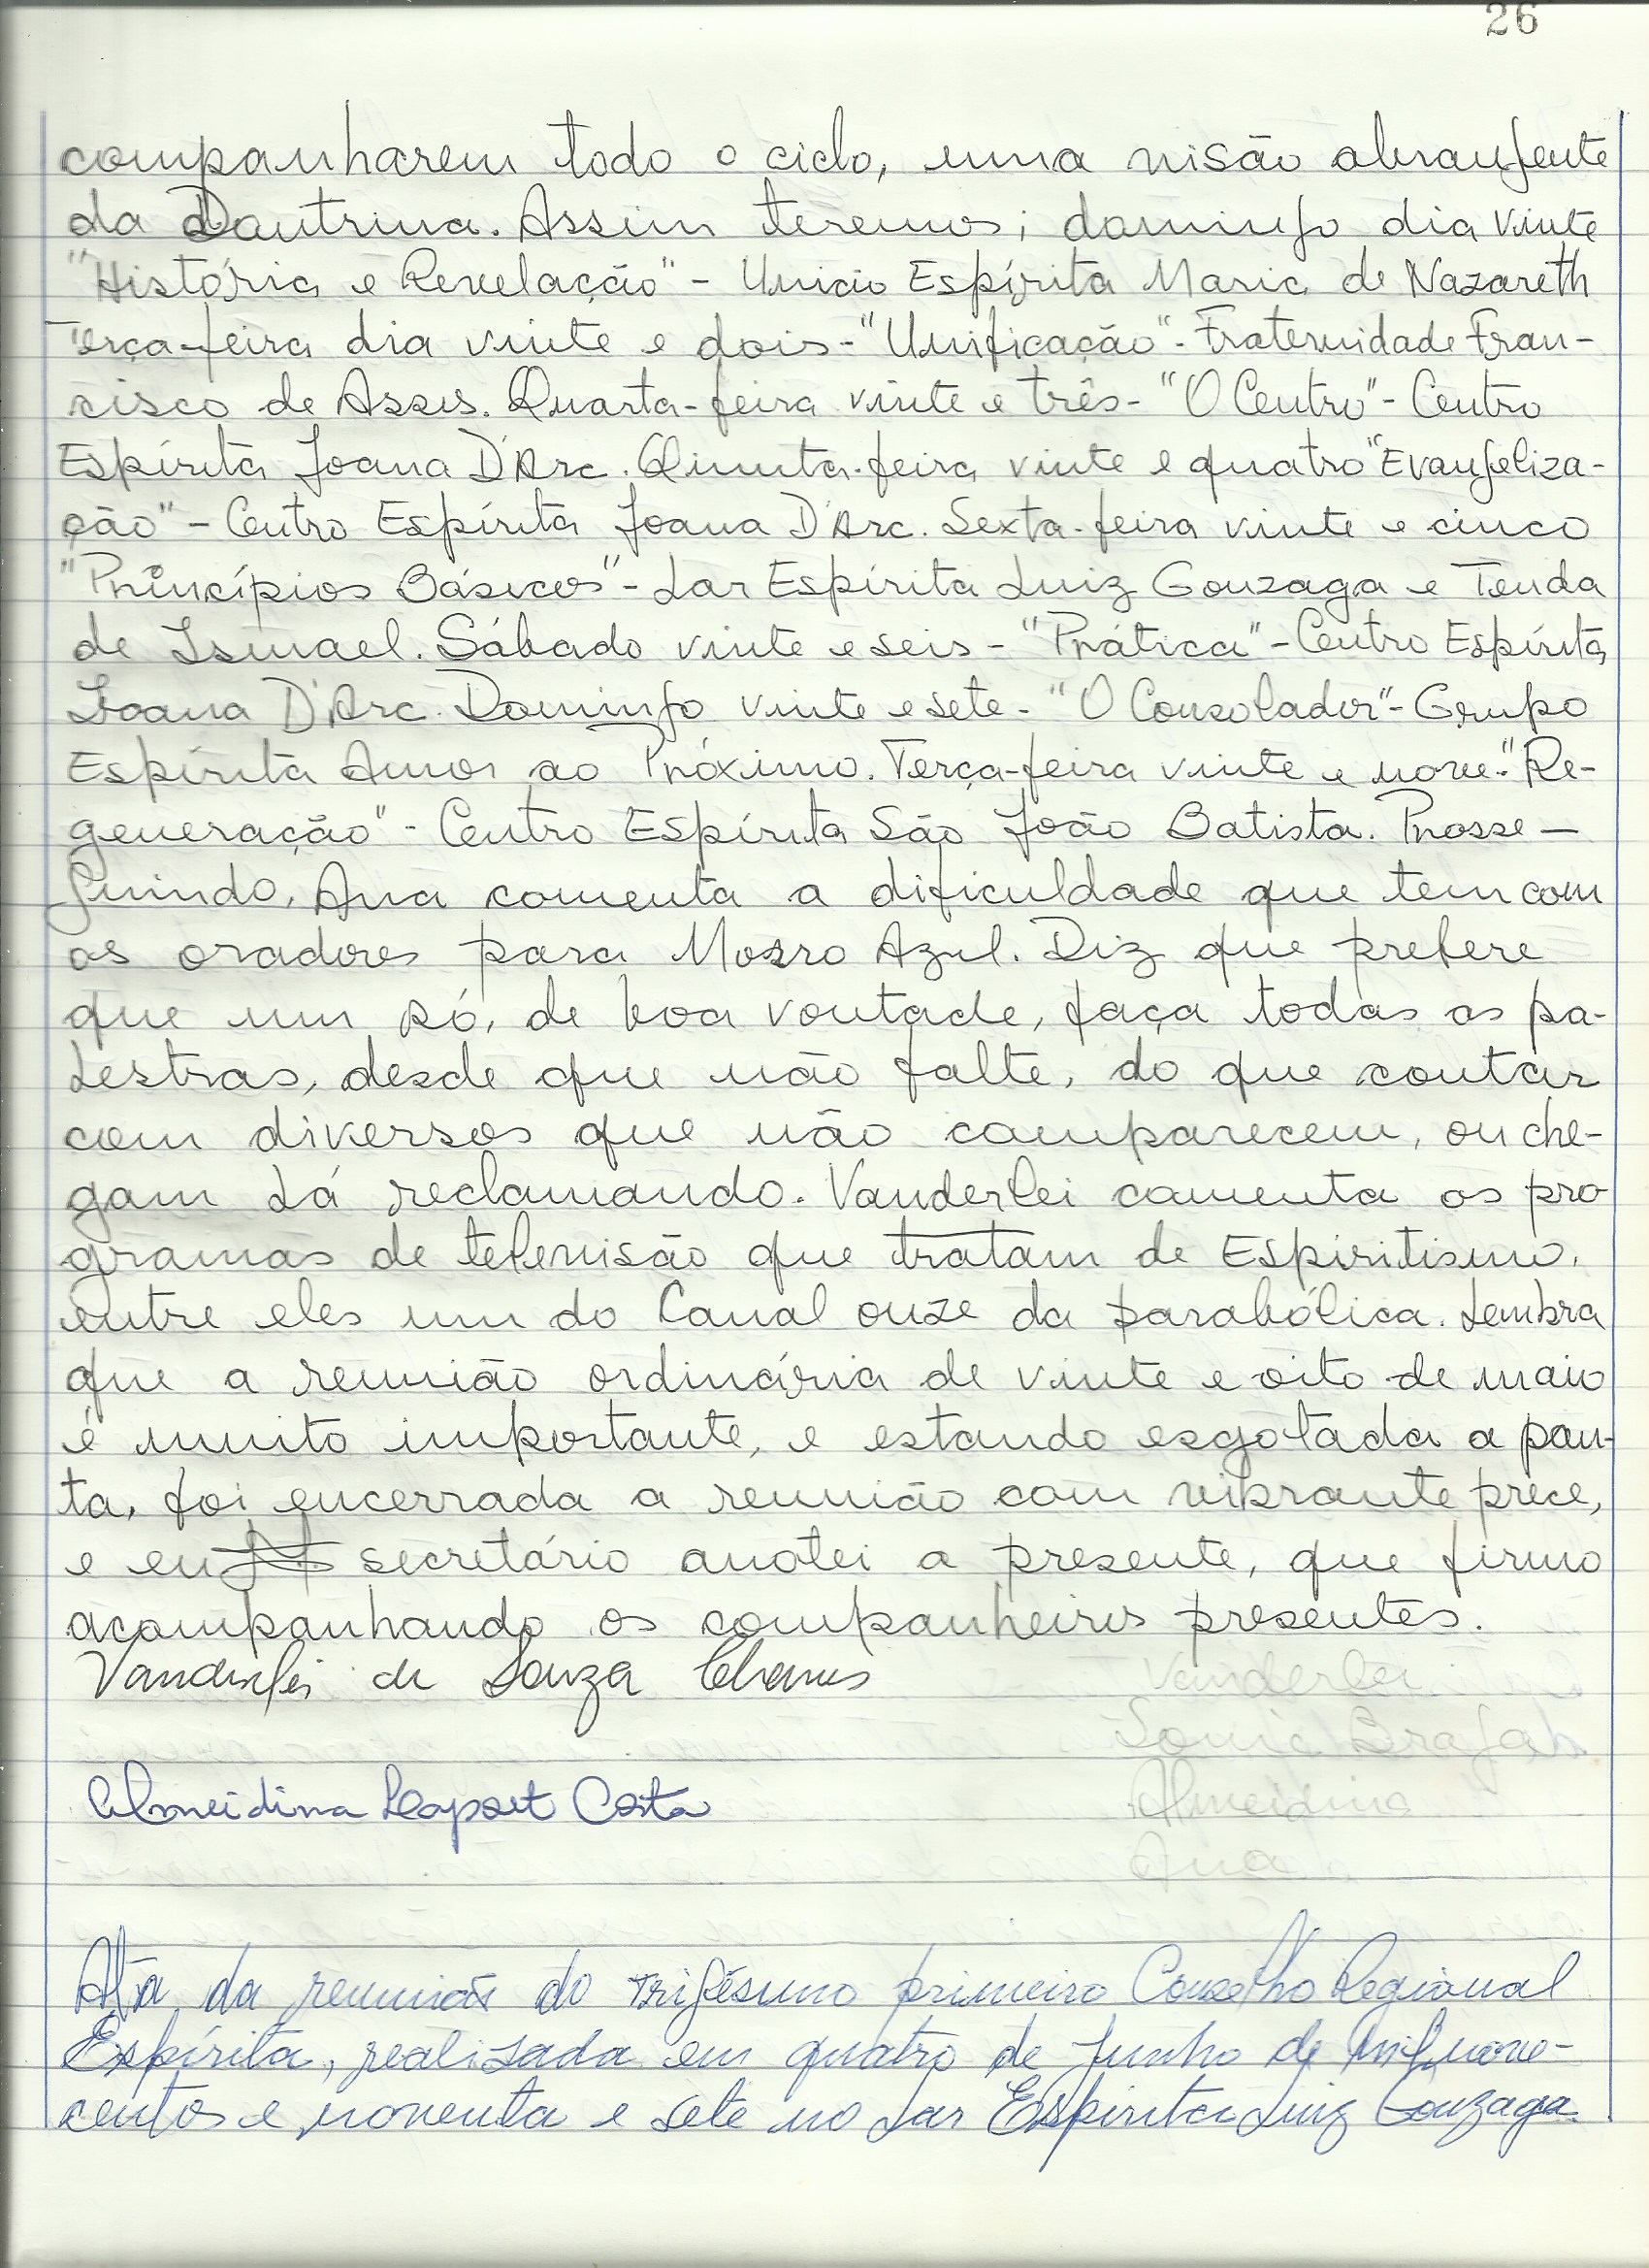 26
companharem todo o ciclo, uma visão abrangente
da Doutrina. Assim teremos; domingo dia vinte
"História e Revelação" - União Espírita Maria de Nazareth
Terça-feira dia vinte e dois - "Unificação" - Fraternidade Fran-
cisco de Assis. Quarta-feira vinte e três - "O Centro" - Centro
Espírita Joana D'Arc. Quinta-feira vinte e quatro "Evangeliza-
ção" - Centro Espírita Joana D'Arc. Sexta-feira vinte e cinco
"Princípios Básicos" - Lar Espírita Luiz Gonzaga e Tenda
de Ismael. Sábado vinte e seis - "Prática" - Centro Espírita
Joana D'Arc. Domingo vinte e sete - "O Consolador" - Grupo
Espírita Amor ao Próximo. Terça-feira vinte e nove - "Re-
generação" - Centro Espírita São João Batista. Prosse-
guindo, Ana comenta a dificuldade que tem com
os oradores para Morro Azul. Diz que prefere
que um só, de boa vontade, faça todas as pa-
lestras, desde que não falte, do que contar
com diversos que não comparecem, ou che-
gam lá reclamando. Vanderlei comenta os pro
gramas de televisão que tratam de Espiritismo,
entre eles um do Canal onze da parabólica. Lembra
que a reunião ordinária de vinte e oito de maio
é muito importante, e estando esgotada a pau-
ta, foi encerrada a reunião com vibrante prece,
e eu secretário anotei a presente, que firmo
acompanhando os companheiros presentes.
Vanderlei de Souza Chaves
Vanderlei
Sonia Braga
Almeidina Laport Costa
Almeidina
Ana
Ata da reunião do trigésimo primeiro Conselho Regional
Espírita, realizada em quatro de Junho de mil nove-
centos e noventa e sete no Lar Espírita Luiz Gonzaga.